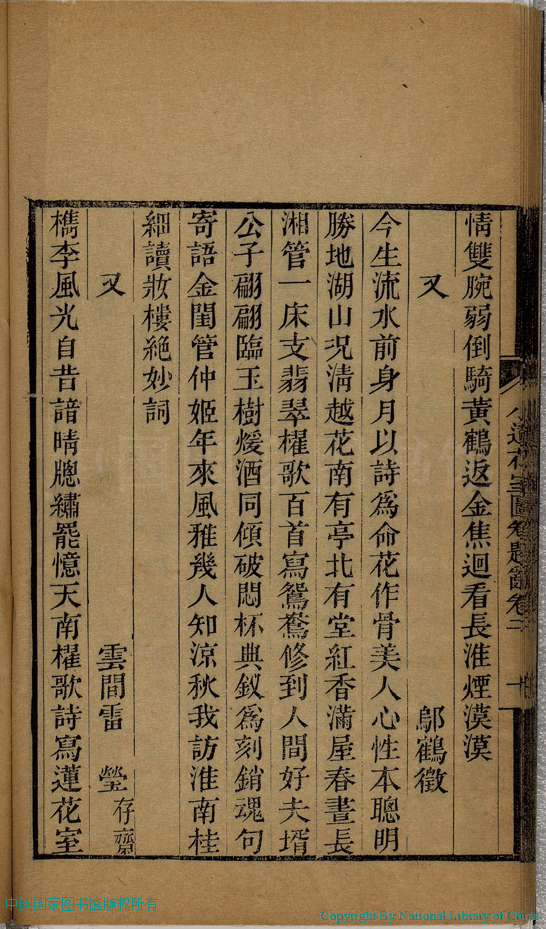 情雙腕弱倒騎黃鶴返金焦迴看長淮煙漠漠
又
鄔鶴徵
今生流水前身月以詩爲命花作骨美人心性本聰明
勝地湖山况清越花南有亭北有堂紅香滿屋春晝長
湘管一床支翡翠櫂歌百首寫鴛鴦修到人間好夫壻
公子翩翩臨玉樹煖酒同傾破悶杯典釵爲刻銷魂句
寄語金閨管仲姬年來風雅幾人知涼秋我訪淮南桂
細讀妝樓絶妙詞
又
雲間雷 瑩存齋
檇李風光自昔諳晴牕繡罷憶天南櫂歌詩寫蓮花室
中国国家图书馆版权所有
Copyright By National Library of China